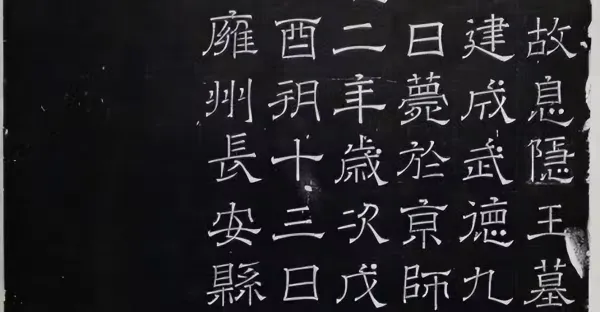 故息隱王墓
建成武德九
日薨於京師
二年歲次戊
酉朔十三日
雍州長安縣